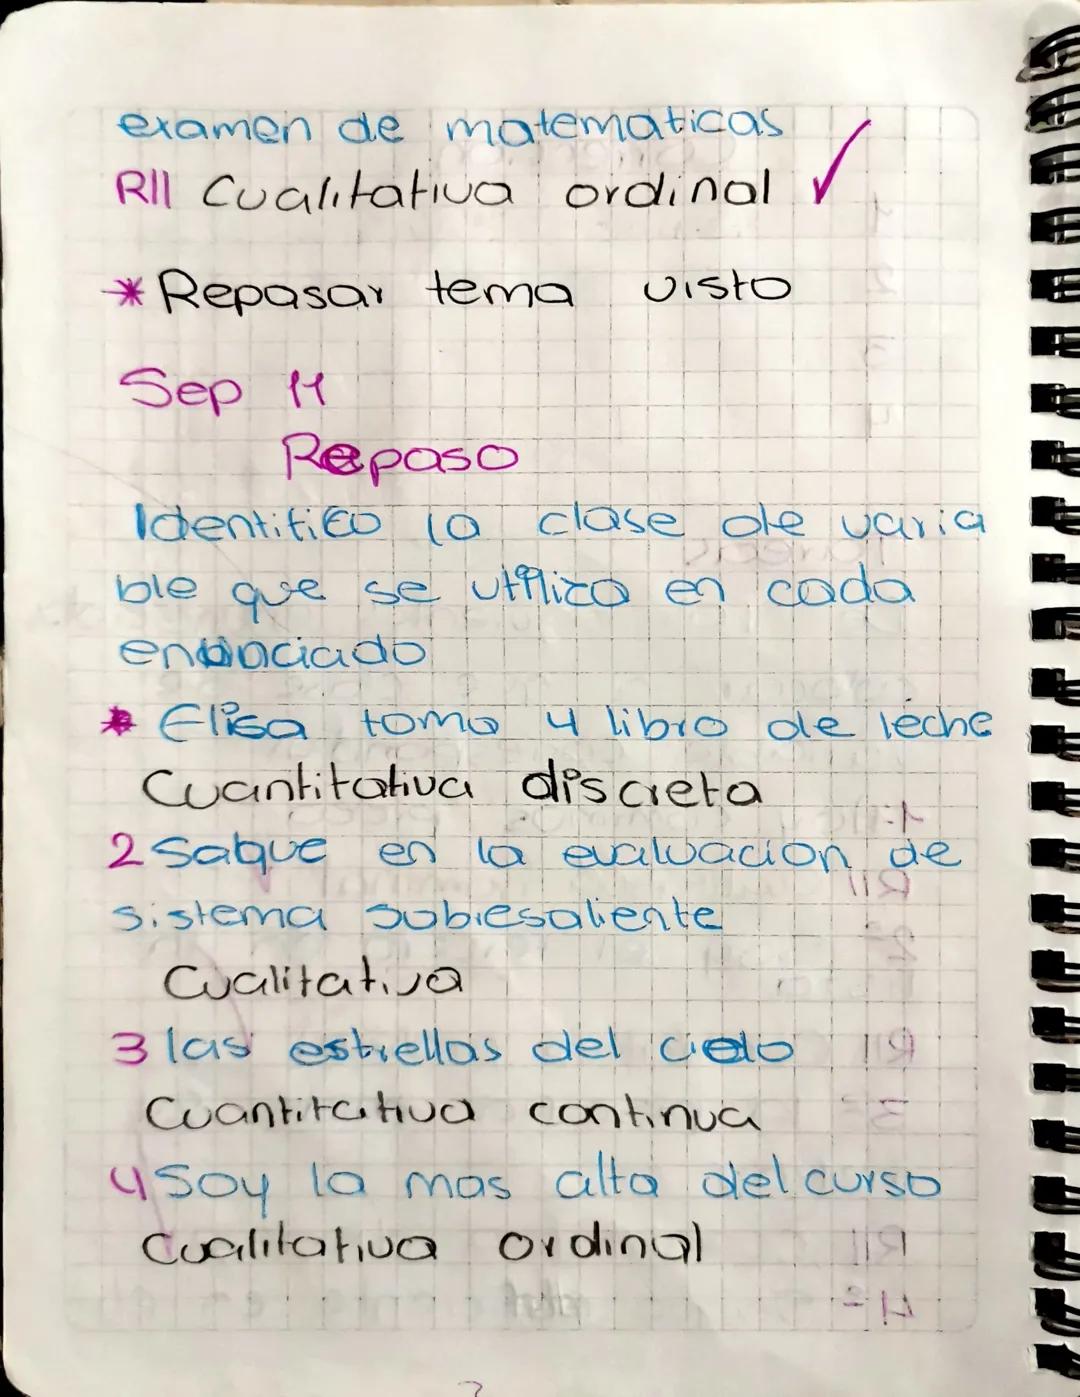 examen de matematicas
RII Cualitativa ordinal ✓
* Repasar tema visto
Sep 11
Repaso
Identifico la clase de varia
ble que se utilizo en cada
enunciado
* Elisa tomo 4 libro de leche
Cuantitativa discreta
2 Saque en la evaluacion de
sistema sobresaliente
Cualitativa
3 las estrellas del cielo
Cuantitativa continua
4 Soy la mas alta del curso
Cualitativa ordinal